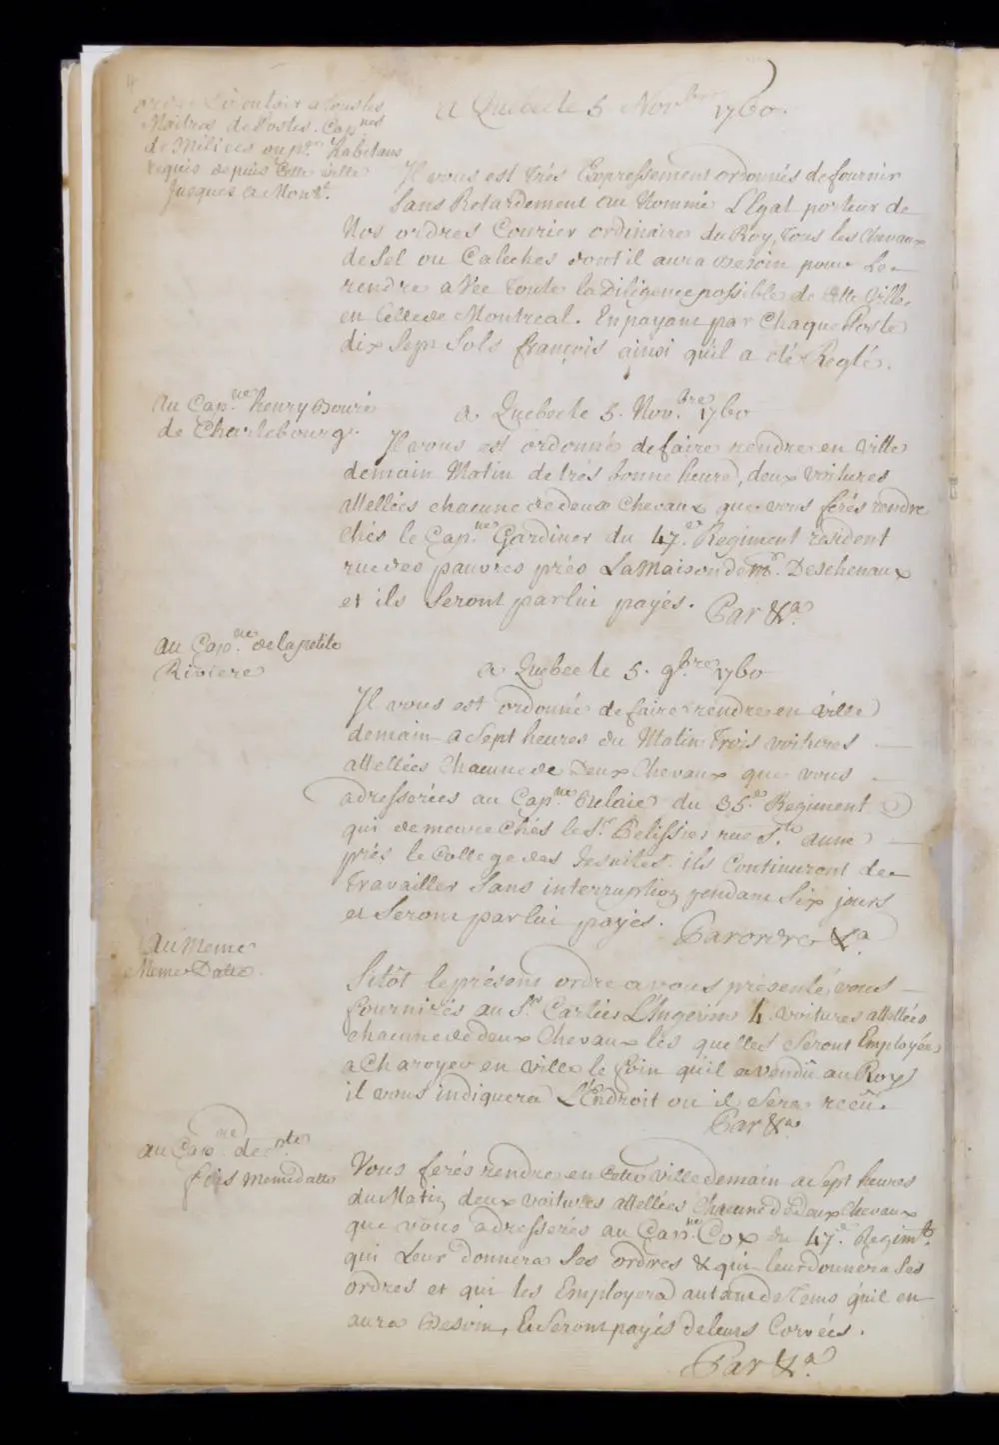 4
ordre Circulair a tous les
Maitres de Postes. Cap.nes
de Milices ou p.rs habitans
requis depuis Cette ville
Jusques a Mont.l
a Quebec le 5 Nov.bre 1760.
Il vous est trés Expressement ordonnés de fournir
Sans Retardement au Nommé Légal porteur de
Nos ordres Courier ordinaire du Roy, tous les Chevaux
de Sel ou Caleches dont il aura besoin pour Se
rendre avec toute la Diligence possible de cette Ville
en Celle de Montreal. En payant par Chaque Poste
dix Sept Sols françois ainsi qu'il a été Reglé.
au Cap.ne henry
de Charlebourg.
a Quebec le 5. Nov.bre 1760
Il vous est ordonné de faire rendre en ville
demain Matin de trés bonne heure, deux voitures
attellées chacune de deux Chevaux que vous ferés rendre
chés le Cap.ne Gardiner du 47.e Regiment resident
rue des pauvres prés La Maison de Mr. Deschenaux
et ils Seront par lui payés. Par &.a
au Cap.ne de la petite
Riviere
a Quebec le 5. 9.bre 1760
Il vous est ordonné de faire rendre en ville
demain a Sept heures du Matin trois voitures
attellées Chacune de Deux Chevaux que vous
adresserées au Cap.ne du 35.e Regiment
qui demeure Chés le S.r Pelissier rue S.te anne
prés le College des Jesuites. ils Continuront de
travailler Sans interruption pendant Six jours
et Seront par lui payés. Par ordre &.a
au Meme
Meme Datte.
Sitôt le présent ordre a vous présenté, vous
fournirés au S.r Carlié L'Angevin 4. voitures attellées
chacune de deux Chevaux les quelles Seront Employées
a Charoyer en ville le foin qu'il a vendû au Roy
il vous indiquera L'Endroit ou il Sera reçû.
Par &.a
au Cap.ne de S.te
foÿs Meme datte
Vous ferés rendre en Cette ville demain a Sept heures
du Matin deux voitures attellées Chacune de Deux Chevaux
que vous adresserés au Cap.ne Cox du 47.e Regim.t
qui Leur donnera Ses ordres & qui leur donnera Ses
ordres et qui les Employera autant de Tems qu'il en
aura Besoin, Ils Seront payés de leurs Corvées.
Par &.a